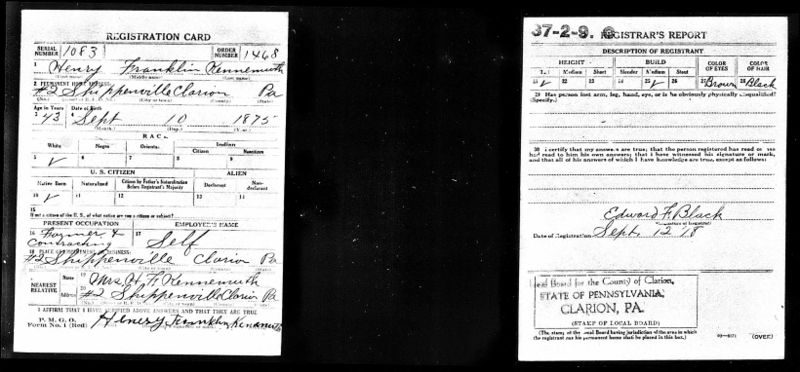 REGISTRATION CARD
SERIAL NUMBER 1083 ORDER NUMBER 1468
1 Henry Franklin Kennemuth
(First name) (Middle name) (Last name)
2 PERMANENT HOME ADDRESS:
#2 Shippenville Clarion Pa
(No.) (City or town) (County) (State)
Age in Years Date of Birth
3 43 4 Sept 10 1875
(Month.) (Day.) (Year.)
RACE
White Negro Oriental Indian
Citizen Noncitizen
5 ✓ 6 7 8 9
U. S. CITIZEN ALIEN
Native Born Naturalized Citizen by Father's Naturalization Before Registrant's Majority Declarant Non-declarant
10 ✓ 11 12 13 14
15
If not a citizen of the U. S., of what nation are you a citizen or subject?
PRESENT OCCUPATION EMPLOYER'S NAME
16 Farmer & 17
Contracting Self
18 PLACE OF EMPLOYMENT OR BUSINESS:
#2 Shippenville Clarion Pa
NEAREST RELATIVE Name 19 Mrs. H F Kennemuth
Address 20 #2 Shippenville Clarion Pa
I AFFIRM THAT I HAVE VERIFIED ABOVE ANSWERS AND THAT THEY ARE TRUE
P. M. G. O.
Form No. 1 (Red) Henery Franklin Kennemuth
37-2-9. C REGISTRAR'S REPORT
DESCRIPTION OF REGISTRANT
HEIGHT BUILD COLOR OF EYES COLOR OF HAIR
Tall Medium Short Slender Medium Stout
21 ✓ 22 23 24 25 ✓ 26 27 Brown 28 Black
29 Has person lost arm, leg, hand, eye, or is he obviously physically disqualified?
(Specify.)
30 I certify that my answers are true; that the person registered has read or has
had read to him his own answers; that I have witnessed his signature or mark,
and that all of his answers of which I have knowledge are true, except as follows:
Edward F. Black
(Signature of Registrar)
Date of Registration Sept. 12 18
Local Board for the County of Clarion,
STATE OF PENNSYLVANIA,
CLARION, PA.
(STAMP OF LOCAL BOARD)
(The stamp of the Local Board having jurisdiction of the area in
which the registrant has his permanent home shall be placed in this box.)
(OVER)